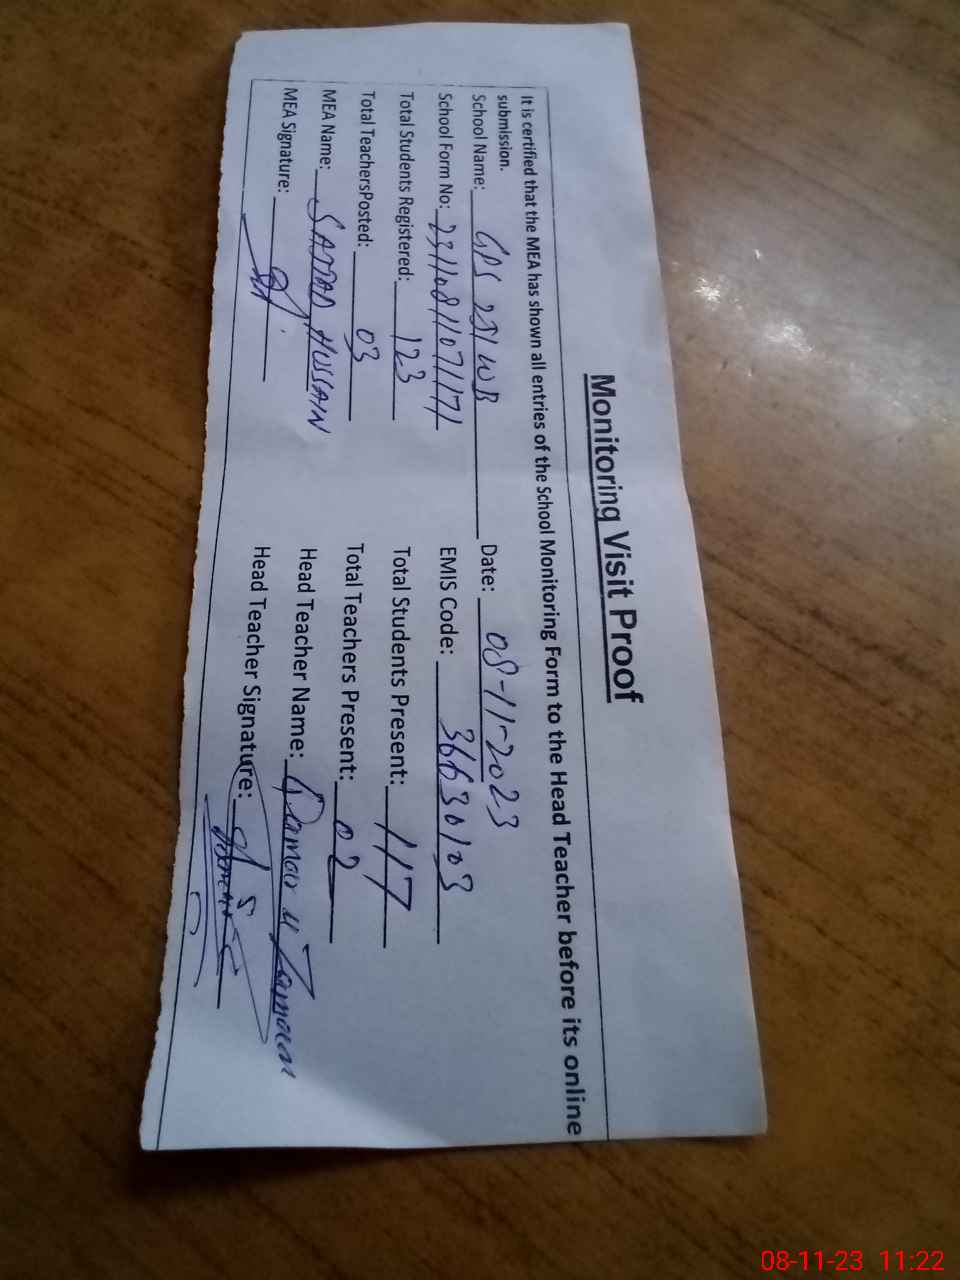 Monitoring Visit Proof
It is certified that the MEA has shown all entries of the School Monitoring Form to the Head Teacher before its online
submission.
School Name: GPS 251 WB Date: 08-11-2023
School Form No: EMIS Code: 36630103
Total Students Registered: 123 Total Students Present: 117
Total TeachersPosted: 03 Total Teachers Present: 02
MEA Name: SAJJAD HUSSAIN Head Teacher Name: Qamar u Zamaan
MEA Signature: Head Teacher Signature:
08-11-23 11:22